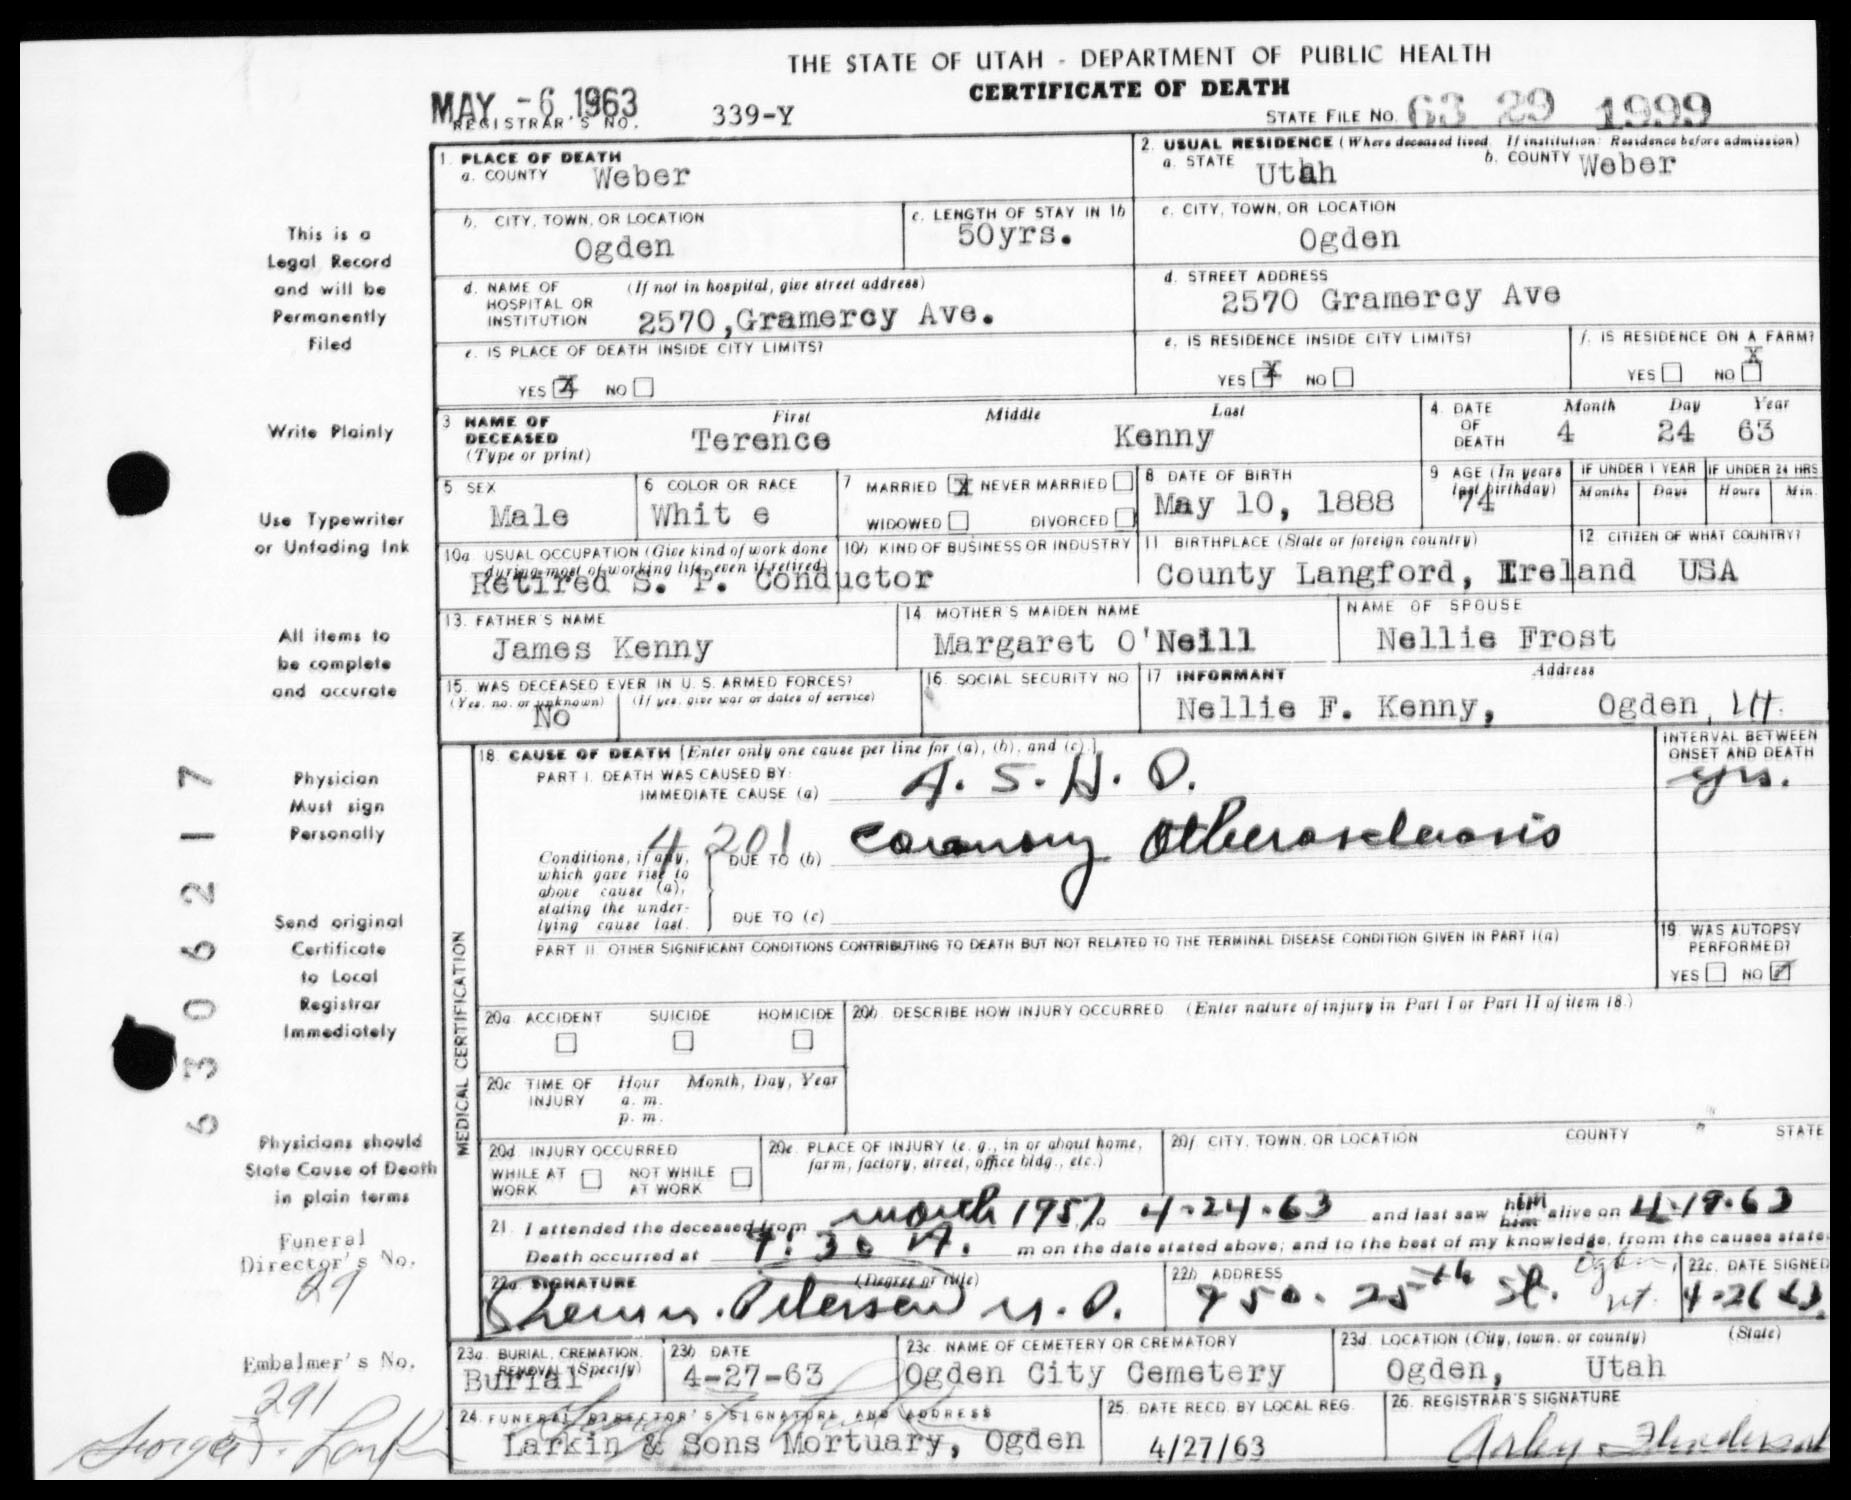 THE STATE OF UTAH - DEPARTMENT OF PUBLIC HEALTH
CERTIFICATE OF DEATH
MAY -6 1963
REGISTRAR'S NO. 339-Y
STATE FILE NO. 63 29 1999
This is a
Legal Record
and will be
Permanently
Filed
Write Plainly
Use Typewriter
or Unfading Ink
All items to
be complete
and accurate
Physician
Must sign
Personally
Send original
Certificate
to Local
Registrar
Immediately
Physicians should
State Cause of Death
in plain terms
Funeral
Director's No.
29
Embalmer's No.
291
George Larkin
63062 17
1. PLACE OF DEATH
a. COUNTY Weber
2. USUAL RESIDENCE (Where deceased lived. If institution: Residence before admission)
a. STATE Utah b. COUNTY Weber
b. CITY, TOWN, OR LOCATION
Ogden
c. LENGTH OF STAY IN 1b
50yrs.
c. CITY, TOWN, OR LOCATION
Ogden
d. NAME OF HOSPITAL OR INSTITUTION (If not in hospital, give street address)
2570,Gramercy Ave.
d. STREET ADDRESS
2570 Gramercy Ave
e. IS PLACE OF DEATH INSIDE CITY LIMITS?
YES X NO
e. IS RESIDENCE INSIDE CITY LIMITS?
YES X NO
f. IS RESIDENCE ON A FARM?
YES NO X
3 NAME OF DECEASED (Type or print)
First Middle Last
Terence Kenny
4. DATE OF DEATH
Month Day Year
4 24 63
5 SEX
Male
6 COLOR OR RACE
Whit e
7 MARRIED X NEVER MARRIED
WIDOWED DIVORCED
8 DATE OF BIRTH
May 10, 1888
9 AGE (In years last birthday)
74
IF UNDER 1 YEAR
Months Days
IF UNDER 24 HRS
Hours Min.
10a USUAL OCCUPATION (Give kind of work done during most of working life, even if retired)
10b KIND OF BUSINESS OR INDUSTRY
Retired S. P. Conductor
11 BIRTHPLACE (State or foreign country)
County Langford, Ireland
12 CITIZEN OF WHAT COUNTRY?
USA
13. FATHER'S NAME
James Kenny
14. MOTHER'S MAIDEN NAME
Margaret O'Neill
NAME OF SPOUSE
Nellie Frost
15. WAS DECEASED EVER IN U. S. ARMED FORCES?
(Yes, no, or unknown) (If yes, give war or dates of service)
No
16. SOCIAL SECURITY NO
17 INFORMANT Address
Nellie F. Kenny, Ogden, Ut.
MEDICAL CERTIFICATION
18. CAUSE OF DEATH [Enter only one cause per line for (a), (b), and (c).]
PART I. DEATH WAS CAUSED BY:
IMMEDIATE CAUSE (a) A. S. H. D.
INTERVAL BETWEEN
ONSET AND DEATH
yrs.
4201
Conditions, if any,
which gave rise to
above cause (a),
stating the under-
lying cause last.
DUE TO (b) Coronary Atherosclerosis
DUE TO (c)
PART II OTHER SIGNIFICANT CONDITIONS CONTRIBUTING TO DEATH BUT NOT RELATED TO THE TERMINAL DISEASE CONDITION GIVEN IN PART I(a)
19. WAS AUTOPSY PERFORMED?
YES NO
20a ACCIDENT SUICIDE HOMICIDE
20b DESCRIBE HOW INJURY OCCURRED (Enter nature of injury in Part I or Part II of item 18.)
20c TIME OF INJURY
Hour Month, Day, Year
a. m.
p. m.
20d INJURY OCCURRED
WHILE AT WORK NOT WHILE AT WORK
20e. PLACE OF INJURY (e. g., in or about home, farm, factory, street, office bldg., etc.)
20f CITY, TOWN, OR LOCATION COUNTY STATE
21. I attended the deceased from march 1957 to 4-24-63 and last saw him alive on 4-19-63
Death occurred at 9:30 A. m on the date stated above; and to the best of my knowledge, from the causes state
22a SIGNATURE (Degree or title)
Petersen M. D.
22b ADDRESS
950. 25th St. Ogden, Ut.
22c. DATE SIGNED
4-26 63
23a. BURIAL, CREMATION, REMOVAL (Specify)
Burial
23b DATE
4-27-63
23c. NAME OF CEMETERY OR CREMATORY
Ogden City Cemetery
23d. LOCATION (City, town, or county) (State)
Ogden, Utah
24. FUNERAL DIRECTOR'S SIGNATURE AND ADDRESS
Larkin & Sons Mortuary, Ogden
25. DATE RECD. BY LOCAL REG.
4/27/63
26. REGISTRAR'S SIGNATURE